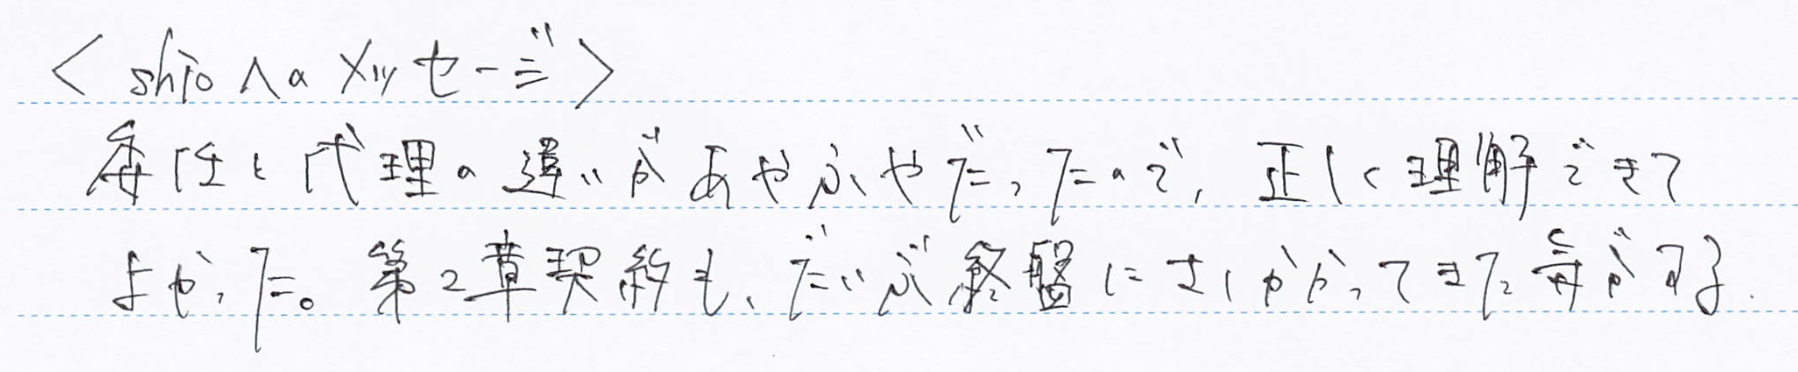 ＜shioへのメッセージ＞
委任と代理の違いがあやふやだったので、正しく理解できて
よかった。第2章契約も、だいぶ終盤にさしかかってきた気がする。